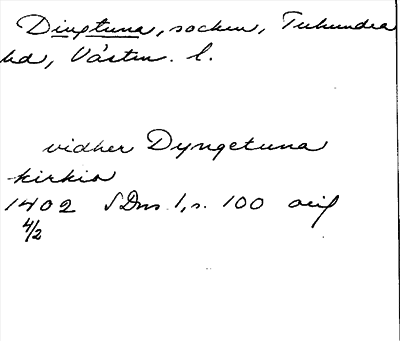 Dingtuna, socken, Tuhundra
hd, Västm. l.
vidher Dyngetuna
kirkio
1402 SDns 1, s. 100 orig
4/2